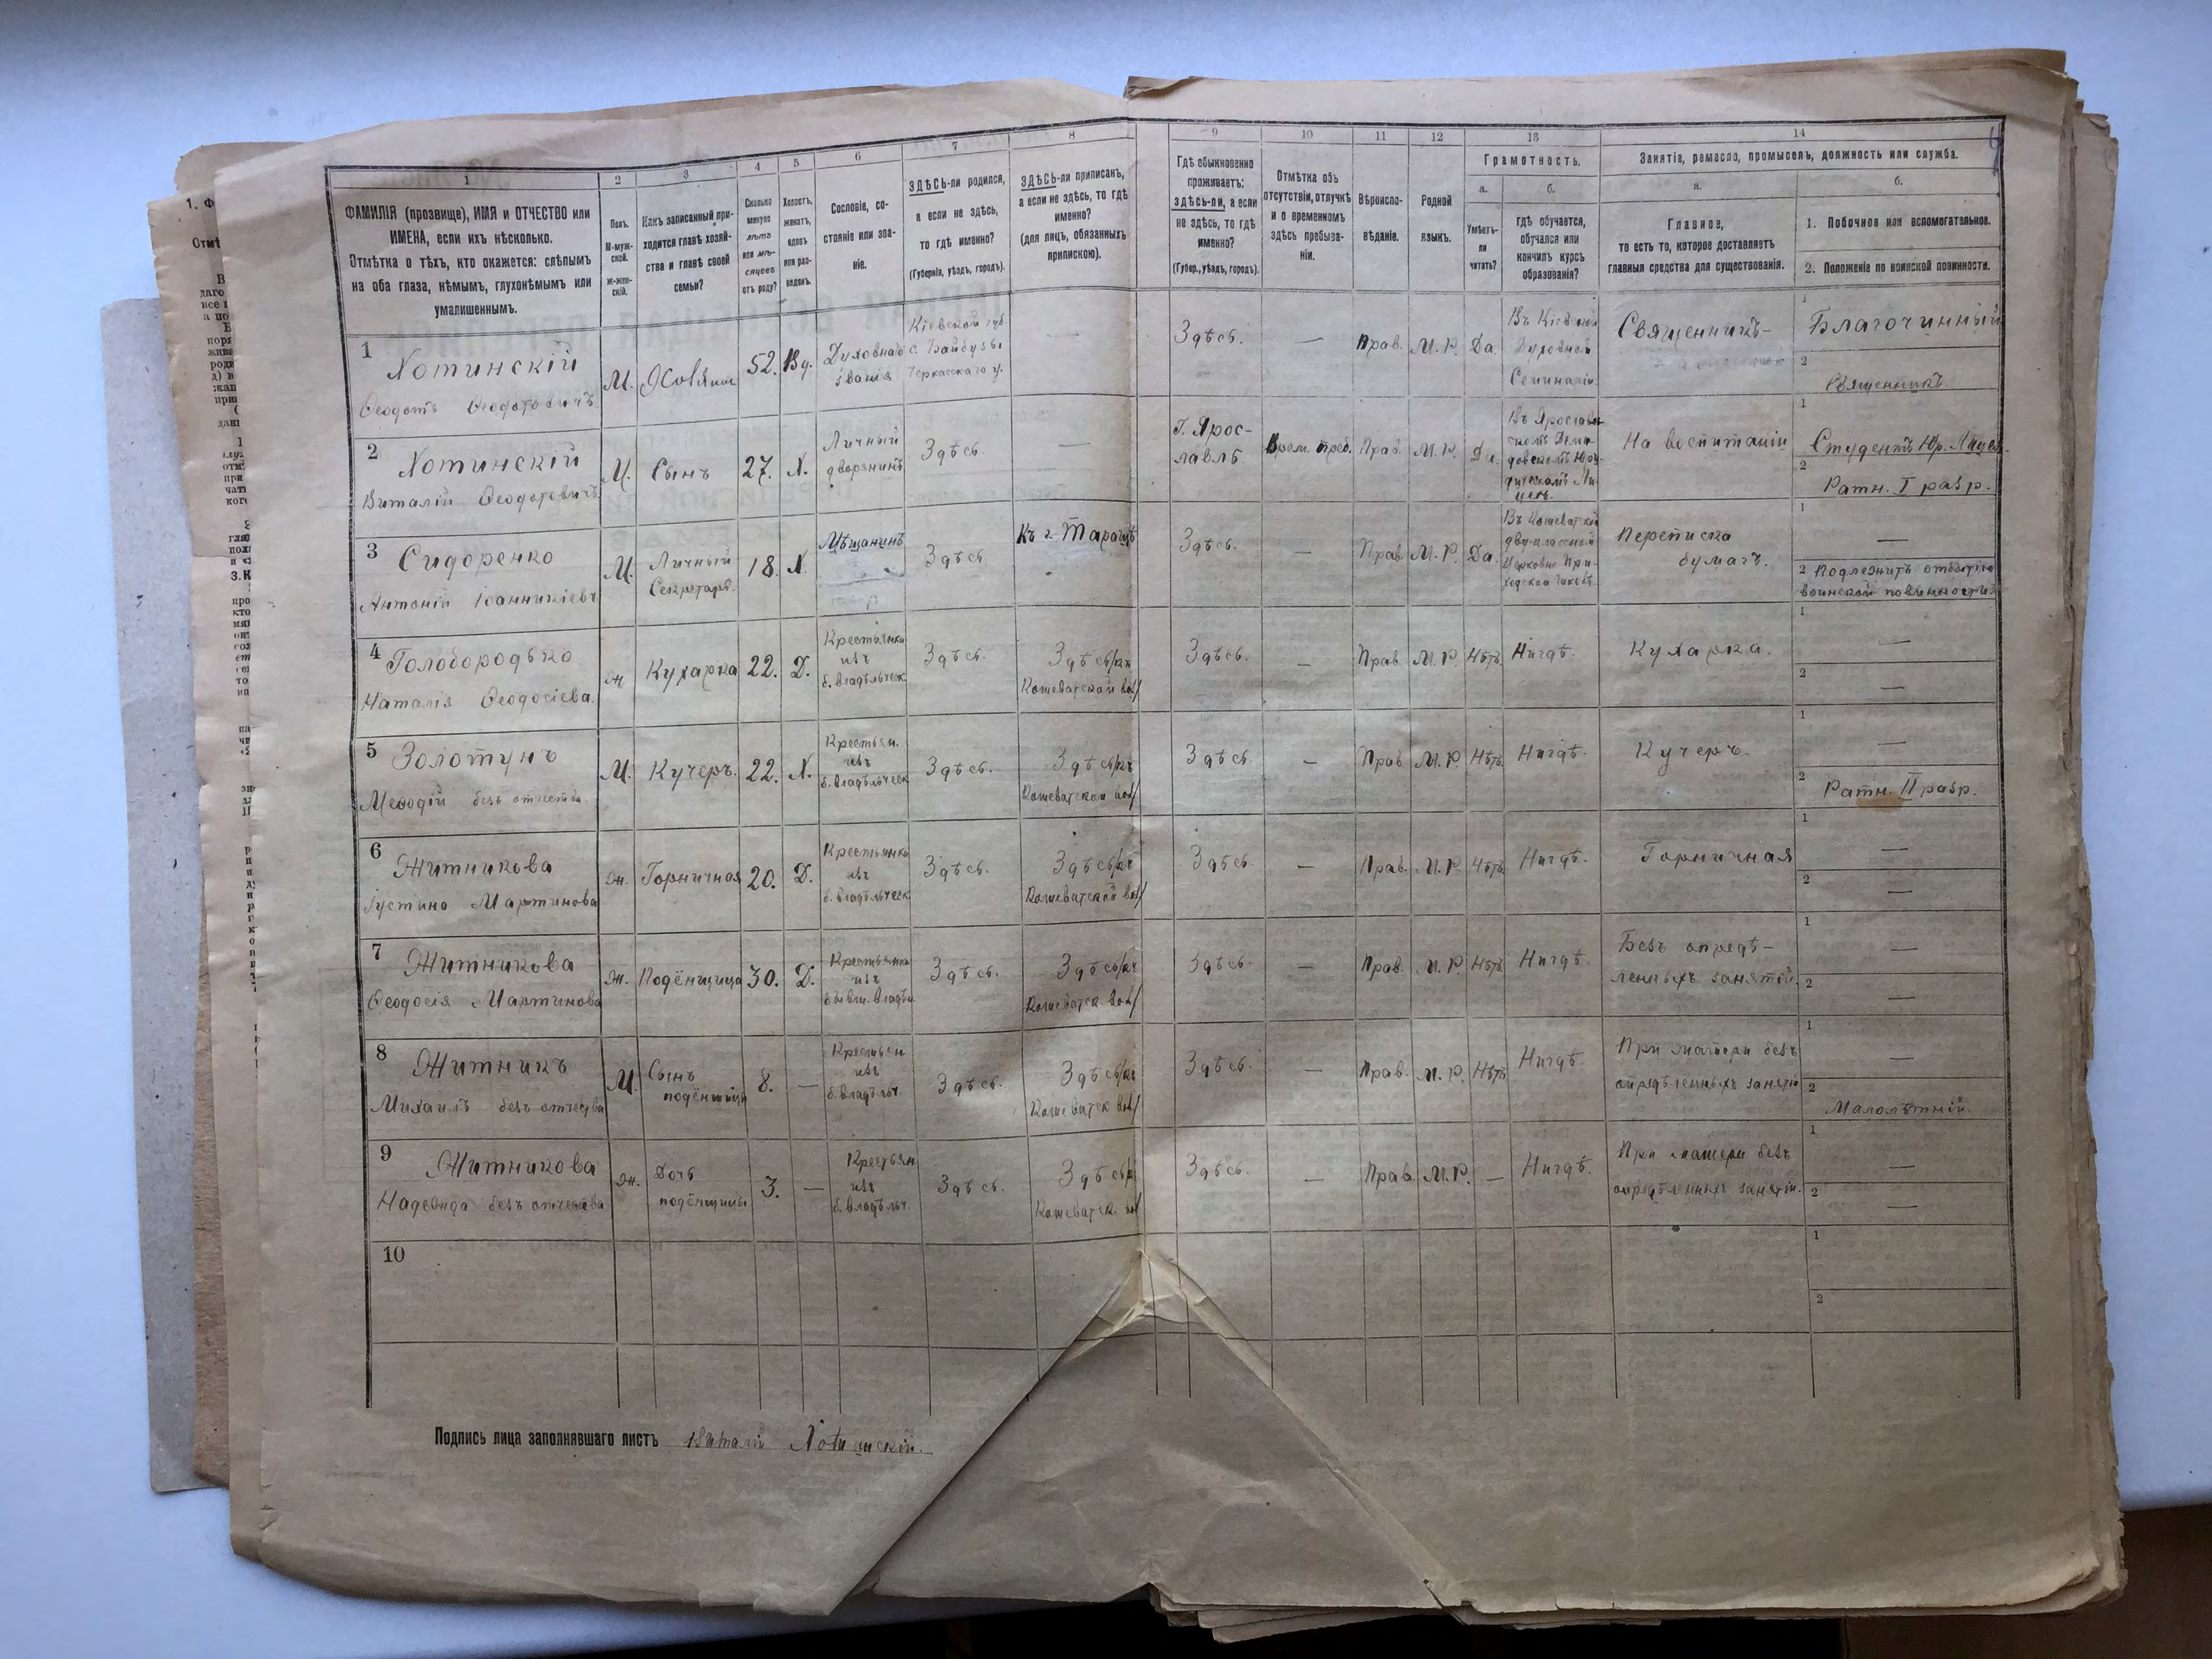 1 2 3 4 5 6 7 8 9 10 11 12 13 14
ФАМИЛІЯ (прозвище), ИМЯ и ОТЧЕСТВО или
ИМЕНА, если ихъ нѣсколько.
Отмѣтка о тѣхъ, кто окажется: слѣпымъ
на оба глаза, нѣмымъ, глухонѣмымъ или
умалишеннымъ.
Полъ.
М-муж-
ской.
Ж-жен-
скій.
Какъ записанный при-
ходится главѣ хозяй-
ства и главѣ своей
семьи?
Сколько
минуло
лѣтъ
или мѣ-
сяцевъ
отъ роду?
Холостъ,
женатъ,
вдовъ
или раз-
веденъ.
Сословіе, со-
стояніе или зва-
ніе.
ЗДѢСЬ-ли родился,
а если не здѣсь,
то гдѣ именно?
(Губернія, уѣздъ, городъ).
ЗДѢСЬ-ли приписанъ,
а если не здѣсь, то гдѣ
именно?
(для лицъ, обязанныхъ
припискою).
Гдѣ обыкновенно
проживаетъ:
здѣсь-ли, а если
не здѣсь, то гдѣ
именно?
(Губер., уѣздъ, городъ).
Отмѣтка объ
отсутствіи, отлучкѣ
и о временномъ
здѣсь пребыва-
ніи.
Вѣроиспо-
вѣданіе.
Родной
языкъ.
Грамотность.
а. б.
Умѣетъ-
ли
читать?
гдѣ обучается,
обучался или
кончилъ курсъ
образованія?
Занятіе, ремесло, промыселъ, должность или служба.
а. б.
Главное,
то есть то, которое доставляетъ
главныя средства для существованія.
1. Побочное или вспомогательное.
2. Положеніе по воинской повинности.
1
Хотинскій
Ѳеодотъ Ѳеодотовичъ
М. Хозяинъ 52. Вд.
Духовнаго
званія
Кіевской губ
с. Байбузы
Черкасскаго у.
—
Здѣсь. — Прав. М. Р. Да
Въ Кіевской
Духовной
Семинаріи.
Священникъ-
1 Благочинный
2 Священникъ
2
Хотинскій
Виталій Ѳеодотовичъ
М. Сынъ 27. Х.
Личный
дворянинъ
Здѣсь. —
Г. Ярос-
лавлъ
Врем. преб. Прав. М. Р. Да.
Въ Ярослав-
скомъ Деми-
довскомъ Юри-
дическомъ Ли-
цеѣ.
На воспитаніи
1 Студентъ Юр. Лицея.
2 Ратн. I разр.
3
Сидоренко
Антоній Іоанникіевъ
М.
Личный
Секретарь.
18. Х.
Мѣщанинъ
Здѣсь
Къ г. Таращѣ
Здѣсь. — Прав. М. Р. Да.
Въ Кошеватской
двуклассной
Церковно При-
ходской школѣ.
Переписка
бумагъ.
1 —
2 Подлежитъ отбытію
воинской повинности
4
Голобородько
Наталія Ѳеодосіева.
Ж. Кухарка 22. Д.
Крестьянка
изъ
б. владѣльческ.
Здѣсь.
Здѣсь/къ
Кошеватской вол/
Здѣсь. — Прав М. Р. Нѣтъ Нигдѣ.
Кухарка.
1 —
2 —
5
Золотунъ
Меѳодій безъ отчества.
М. Кучеръ. 22. Х.
Крестьян.
изъ
б. владѣльческ
Здѣсь.
Здѣсь/къ
Кошеватской вол/
Здѣсь — Прав М. Р. Нѣтъ Нигдѣ.
Кучеръ.
1 —
2 Ратн. II разр.
6
Житникова
Іустина Мартинова
Ж. Горничная 20. Д.
Крестьянка
изъ
б. владѣльческ
Здѣсь.
Здѣсь/къ
Кошеватской вол/
Здѣсь. — Прав. М. Р. Нѣтъ Нигдѣ.
Горничная
1 —
2 —
7
Житникова
Ѳеодосія Мартинова
Ж. Подёнщица 30. Д.
Крестьянка
изъ
бывш. владѣл
Здѣсь.
Здѣсь/къ
Кошеватск вол/
Здѣсь. — Прав. М. Р. Нѣтъ Нигдѣ.
Безъ опредѣ-
ленныхъ занятій.
1 —
2 —
8
Житникъ
Михаилъ безъ отчества
М.
Сынъ
подёнщицы
8. —
Крестьян
изъ
б. владѣльч.
Здѣсь.
Здѣсь/къ
Кошеватск вол/
Здѣсь. — Прав. М. Р. Нѣтъ Нигдѣ.
При матери безъ
опредѣленныхъ занятій
1 —
2 Малолѣтній.
9
Житникова
Надежда безъ отчества
Ж.
Дочь
подёнщицы
3. —
Крестьян
изъ
б. владѣльч.
Здѣсь.
Здѣсь/к
Кошеватск. вол
Здѣсь. — Прав. М. Р. — Нигдѣ.
При матери безъ
опредѣленныхъ занятій.
1 —
2 —
10
1
2
Подпись лица заполнявшаго листъ Виталій Хотинскій.